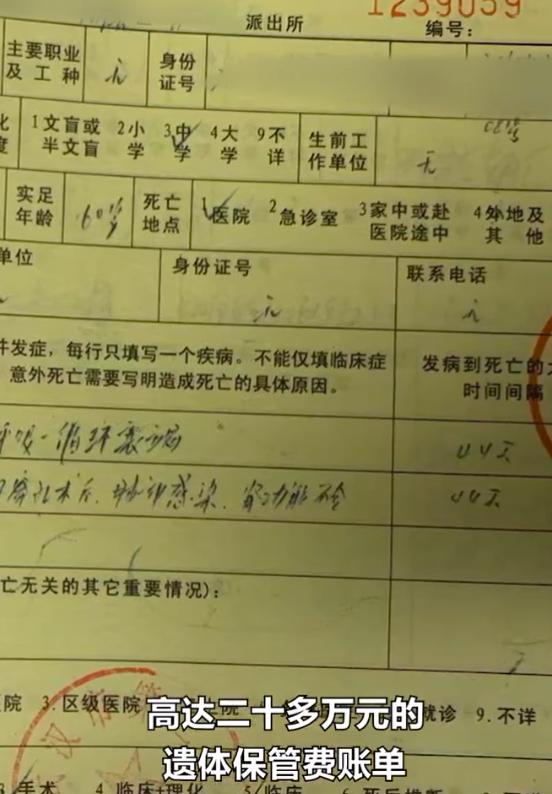 1239059
派出所 编号:
主要职业及工种 无 身份证号
1文盲或半文盲 2小学 3中学 4大学 9不详 生前工作单位 无
实足年龄 60岁 死亡地点 1医院 2急诊室 3家中或赴医院途中 4外地及其他
单位 身份证号 联系电话
无 无
并发症，每行只填写一个疾病。不能仅填临床症 发病到死亡的大
意外死亡需要写明造成死亡的具体原因。 时间间隔
呼吸-循环衰竭 44天
术后、肺部感染、肾功能不全 44天
亡无关的其它重要情况):
院 3.区级医院 就诊 9.不详
高达二十多万元的
遗体保管费账单
手术 4.临床+理化 5.临床 6.死后推断